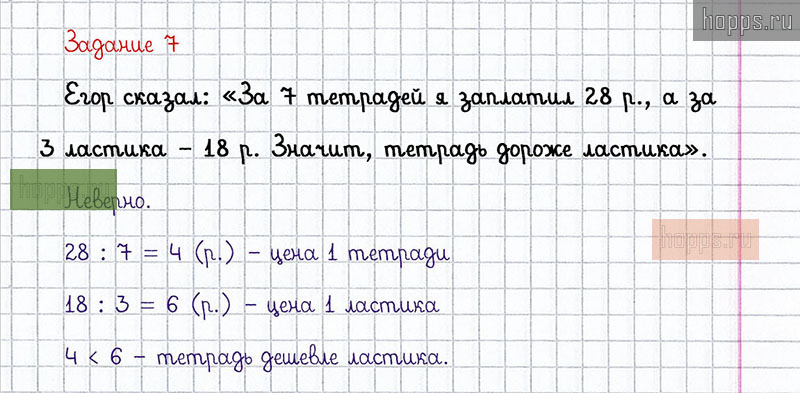 hopps.ru
Задание 7
Егор сказал: «За 7 тетрадей я заплатил 28 р., а за
3 ластика – 18 р. Значит, тетрадь дороже ластика».
hopps.ru
Неверно.
28 : 7 = 4 (р.) – цена 1 тетради
hopps.ru
18 : 3 = 6 (р.) – цена 1 ластика
4 < 6 – тетрадь дешевле ластика.